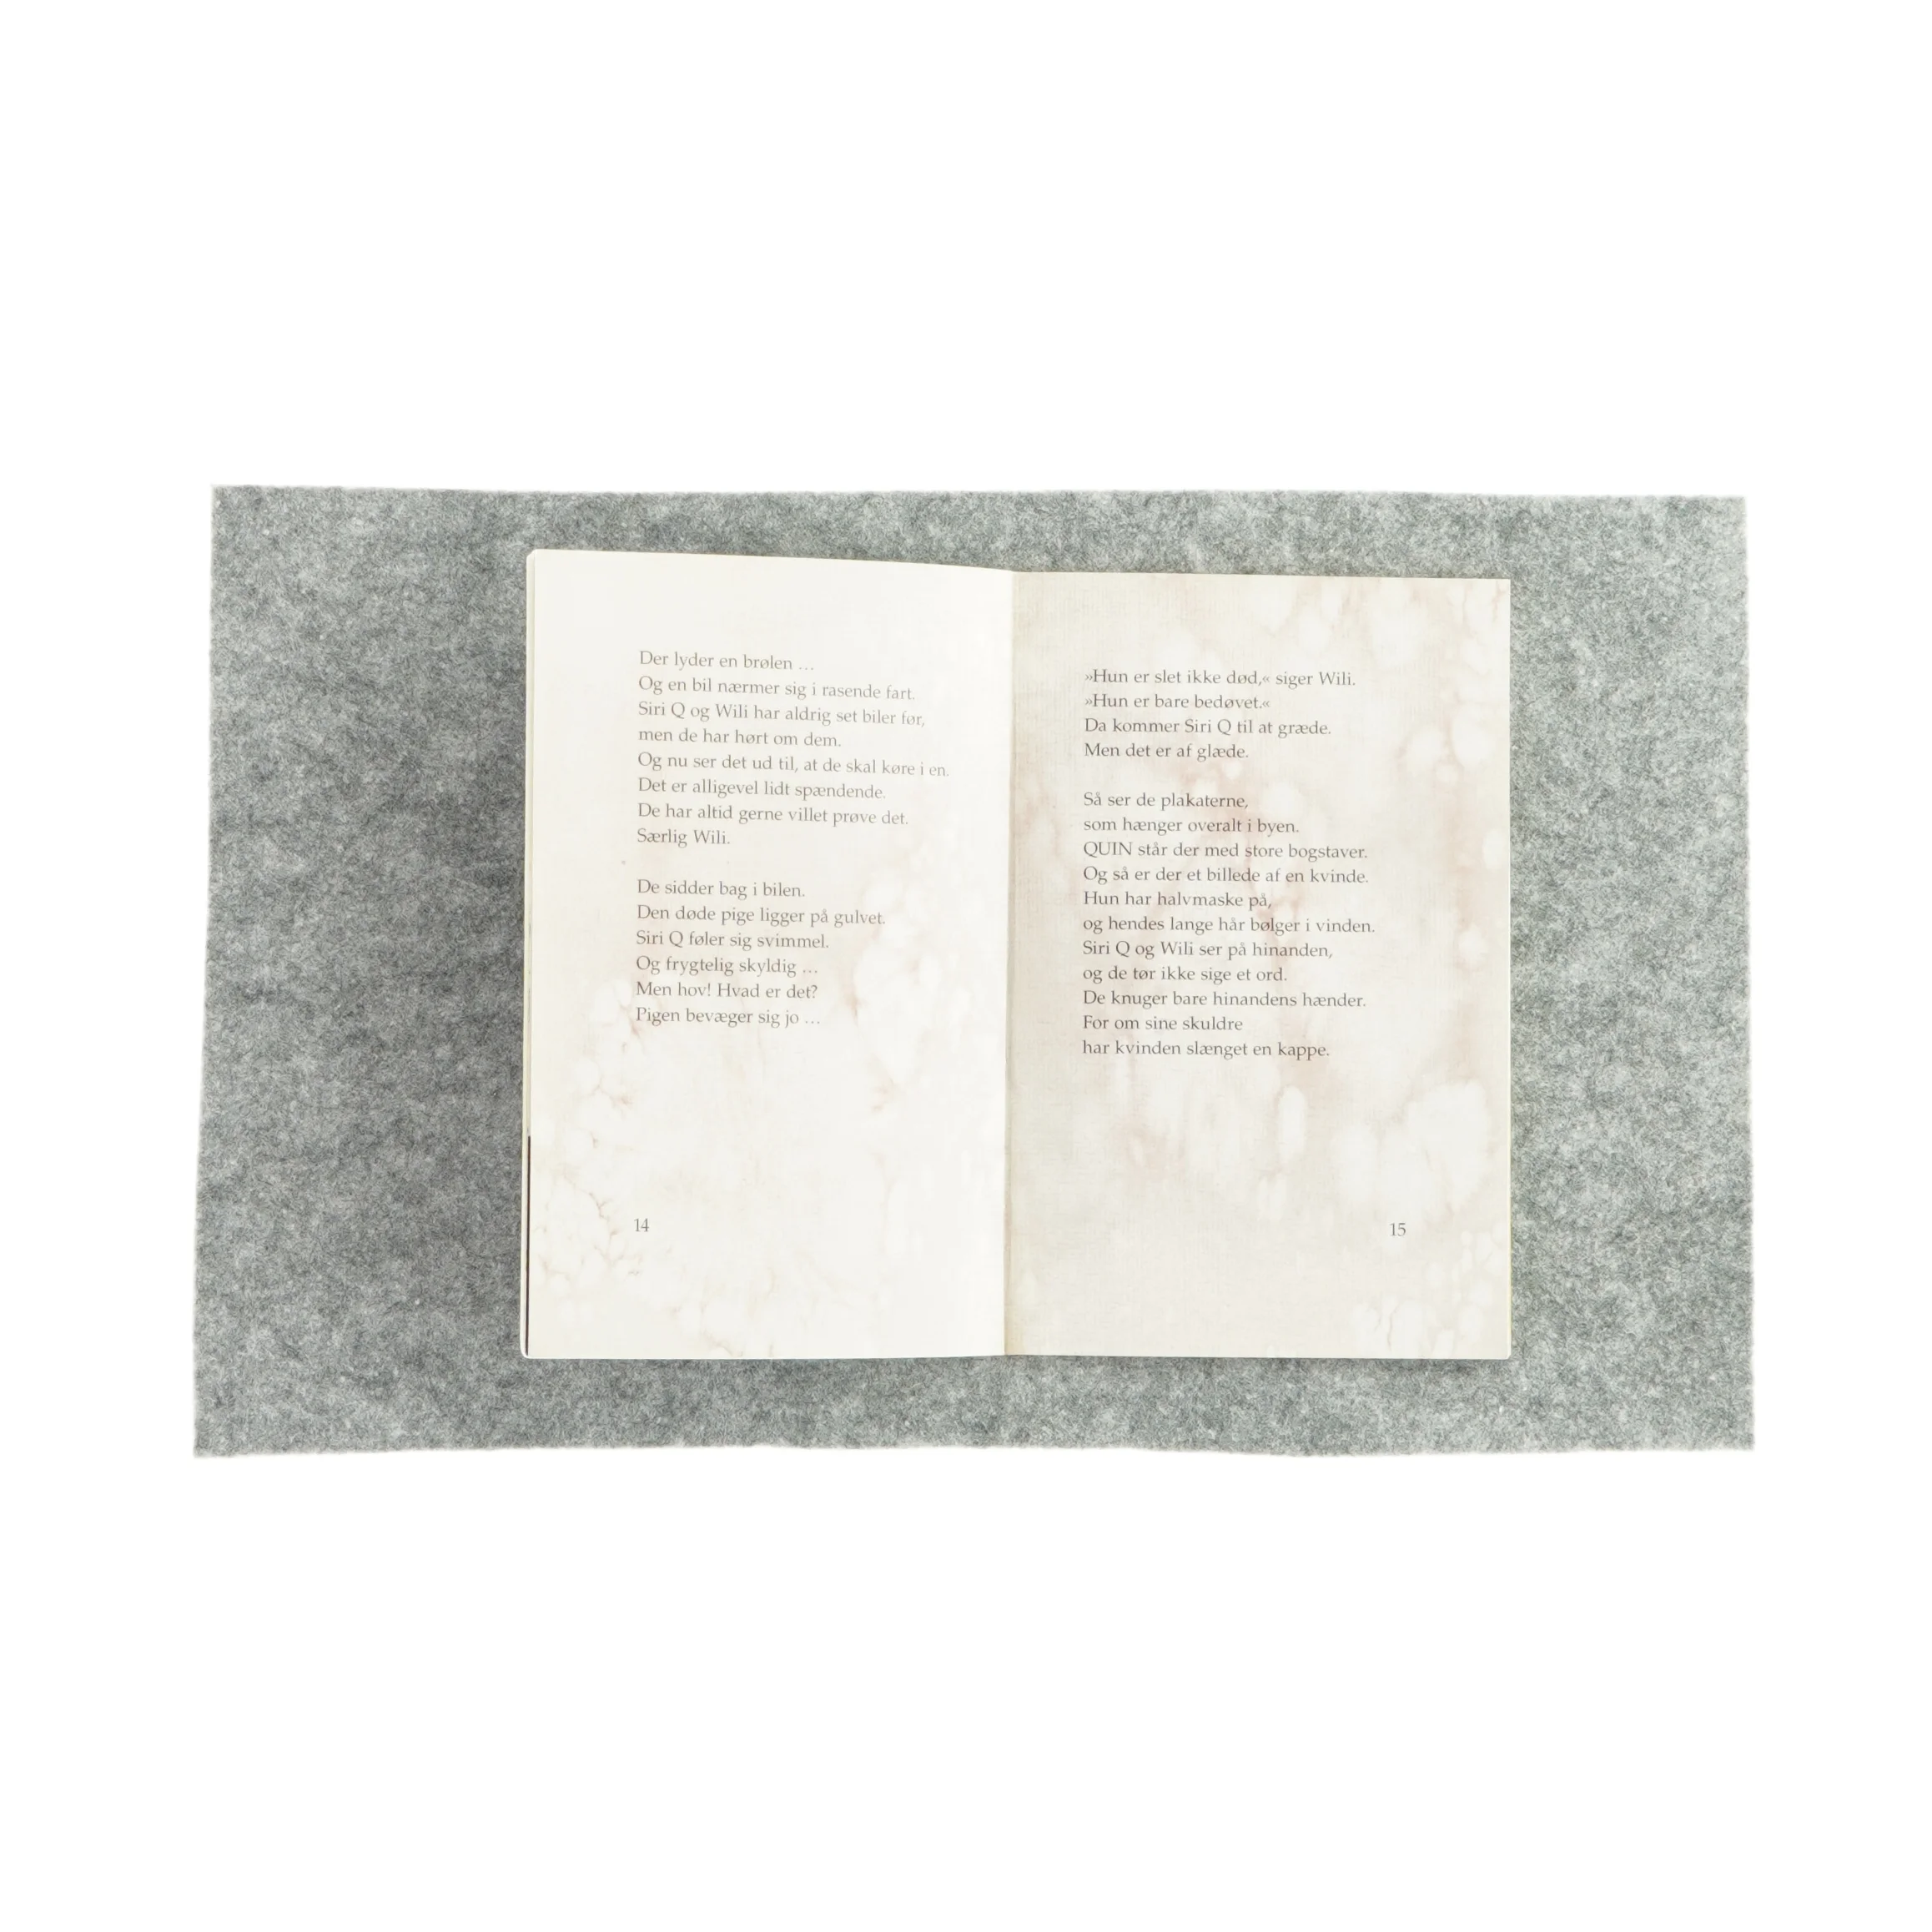 Der lyder en brølen …
Og en bil nærmer sig i rasende fart.
Siri Q og Wili har aldrig set biler før,
men de har hørt om dem.
Og nu ser det ud til, at de skal køre i en.
Det er alligevel lidt spændende.
De har altid gerne villet prøve det.
Særlig Wili.
De sidder bag i bilen.
Den døde pige ligger på gulvet.
Siri Q føler sig svimmel.
Og frygtelig skyldig …
Men hov! Hvad er det?
Pigen bevæger sig jo …
14
»Hun er slet ikke død,« siger Wili.
»Hun er bare bedøvet.«
Da kommer Siri Q til at græde.
Men det er af glæde.
Så ser de plakaterne,
som hænger overalt i byen.
QUIN står der med store bogstaver.
Og så er der et billede af en kvinde.
Hun har halvmaske på,
og hendes lange hår bølger i vinden.
Siri Q og Wili ser på hinanden,
og de tør ikke sige et ord.
De knuger bare hinandens hænder.
For om sine skuldre
har kvinden slænget en kappe.
15